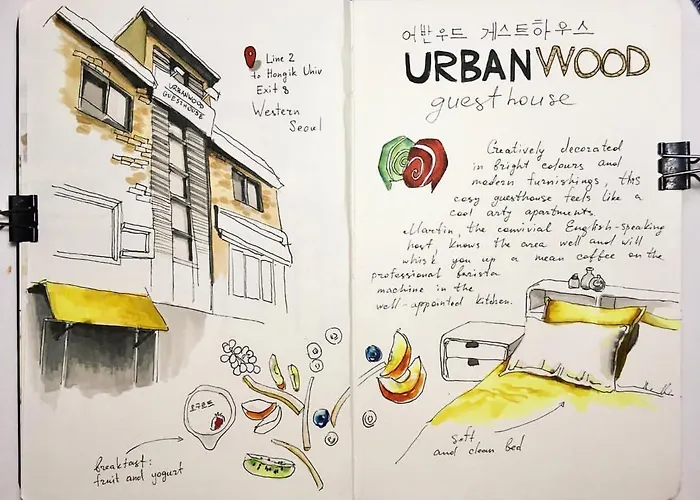 Line 2
to Hongik Univ
Exit 8
Western
Seoul
URBANWOOD
GUESTHOUSE
요구르트
breakfast:
fruit and yogurt
어반우드 게스트하우스
URBANWOOD
guesthouse
Creatively decorated
in bright colours and
modern furnishings, this
cosy guesthouse feels like a
cool arty apartments.
Martin, the convivial English-speaking
host, knows the area well and will
whisk you up a mean coffee on the
professional barista
machine in the
well-appointed kitchen.
soft
and clean bed